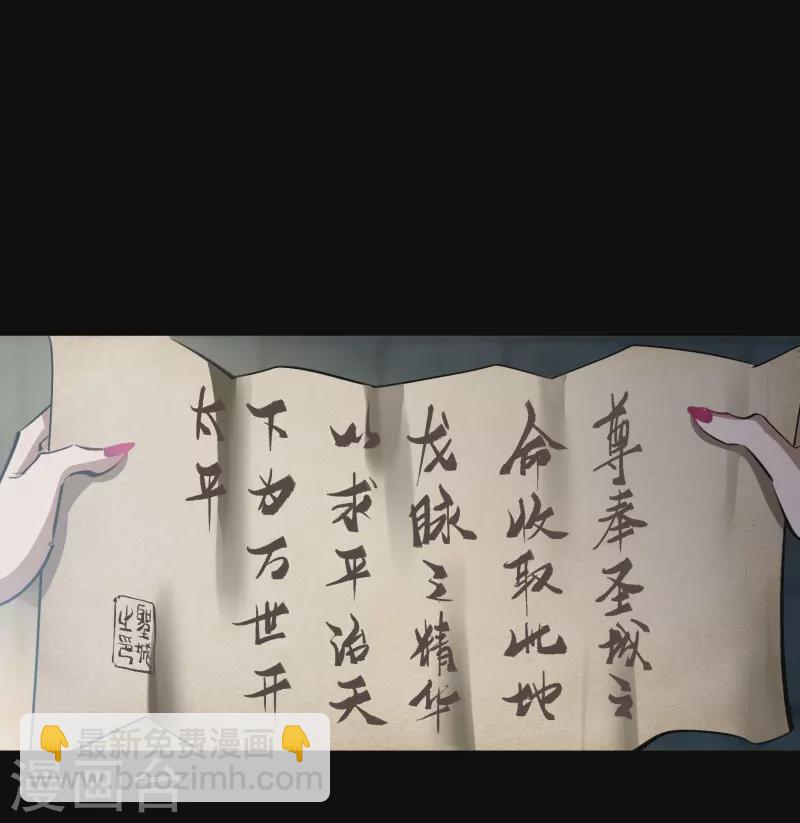 尊奉圣城之
命收取此地
龙脉之精华
以求平治天
下为万世开
太平
聖城
之印
最新免费漫画
www.baozimh.com
漫画台